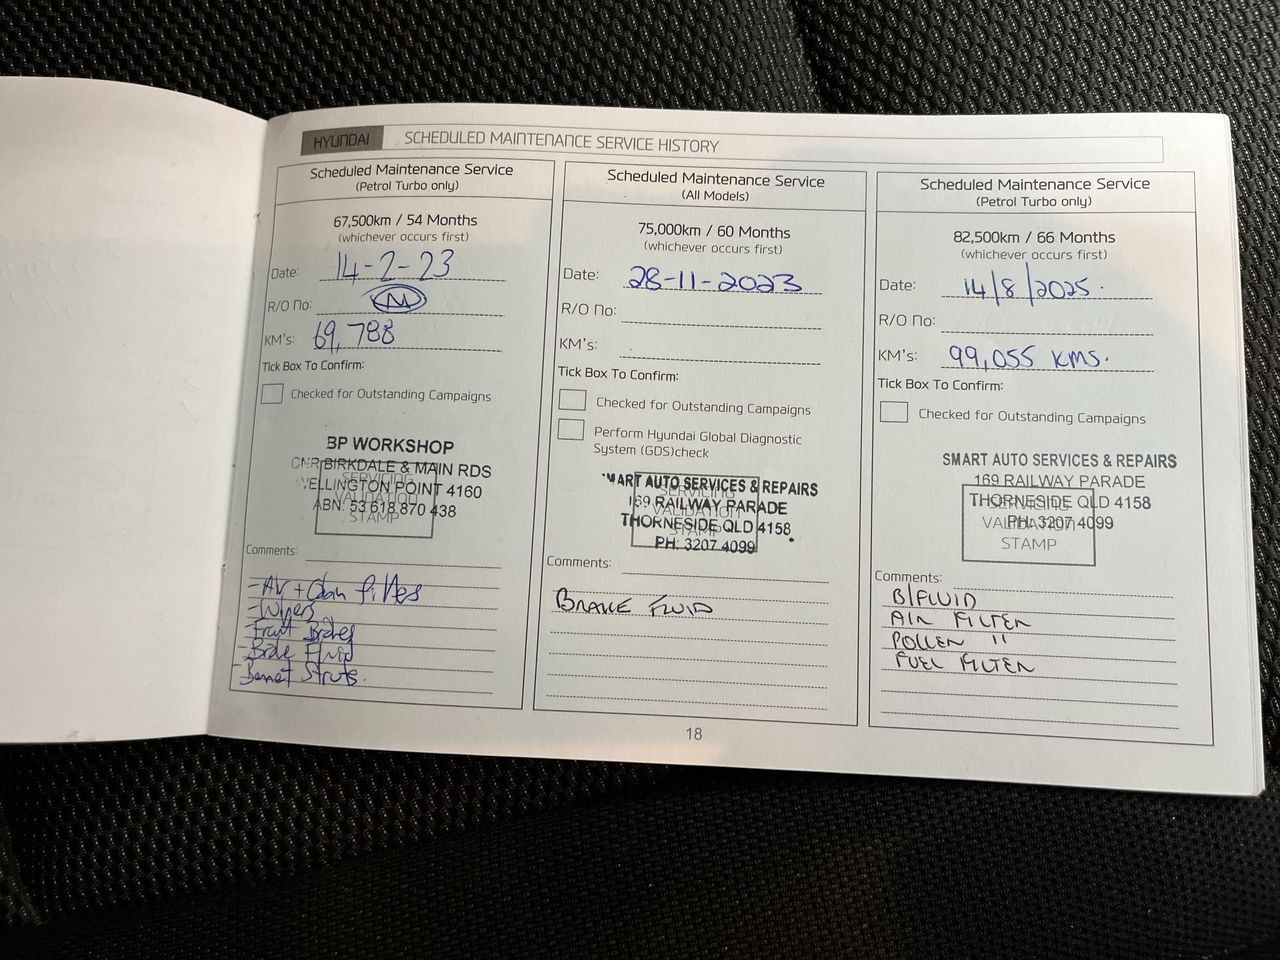 HYUNDAI SCHEDULED MAINTENANCE SERVICE HISTORY
Scheduled Maintenance Service
(Petrol Turbo only)
67,500km / 54 Months
(whichever occurs first)
Date: 14-2-23
R/O No: M
KM's: 69,788
Tick Box To Confirm:
Checked for Outstanding Campaigns
BP WORKSHOP
CNR BIRKDALE & MAIN RDS
WELLINGTON POINT 4160
ABN: 53 618 870 438
SERVICING
VALIDATION
STAMP
Comments:
- Air + Cabin filters
- Wipers
- Front Brakes
- Brake Fluid
- Bonnet Struts.
Scheduled Maintenance Service
(All Models)
75,000km / 60 Months
(whichever occurs first)
Date: 28-11-2023
R/O No:
KM's:
Tick Box To Confirm:
Checked for Outstanding Campaigns
Perform Hyundai Global Diagnostic
System (GDS)check
MART AUTO SERVICES & REPAIRS
169 RAILWAY PARADE
THORNESIDE QLD 4158
PH: 3207 4099
SERVICING
VALIDATION
STAMP
Comments:
BRAKE FLUID
Scheduled Maintenance Service
(Petrol Turbo only)
82,500km / 66 Months
(whichever occurs first)
Date: 14/8/2025.
R/O No:
KM's: 99,055 KMS.
Tick Box To Confirm:
Checked for Outstanding Campaigns
SMART AUTO SERVICES & REPAIRS
169 RAILWAY PARADE
THORNESIDE QLD 4158
PH: 3207 4099
SERVICING
VALIDATION
STAMP
Comments:
B/FLUID
AIR FILTER
POLLEN "
FUEL FILTER
18